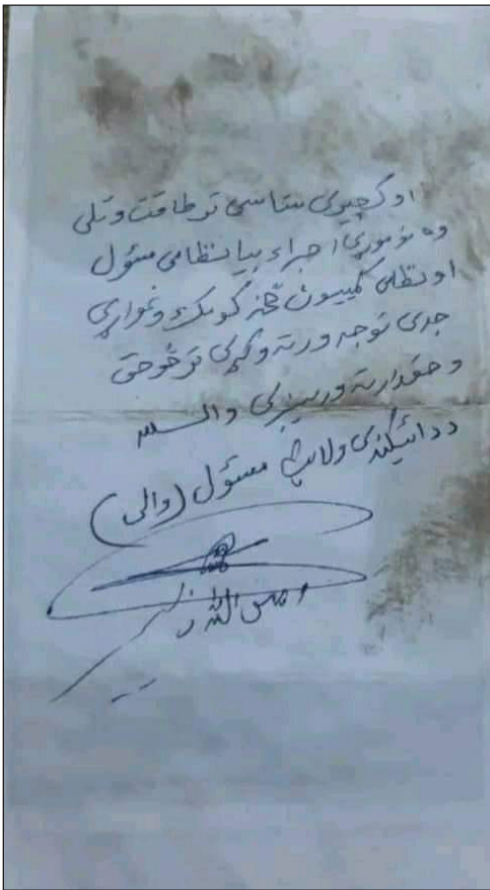 او کچیري ستاسي تر طاقت وتلی
وه نوموړي اجراء بیا نظامی مسئول
او نظامی کمیسون څخه کومک وغواړی
جدی توجه ورته وکړی تر څو حق
و حقدار ته ورسیږی والسلام
د دائیکندی ولایت مسئول (والی)
امین الله